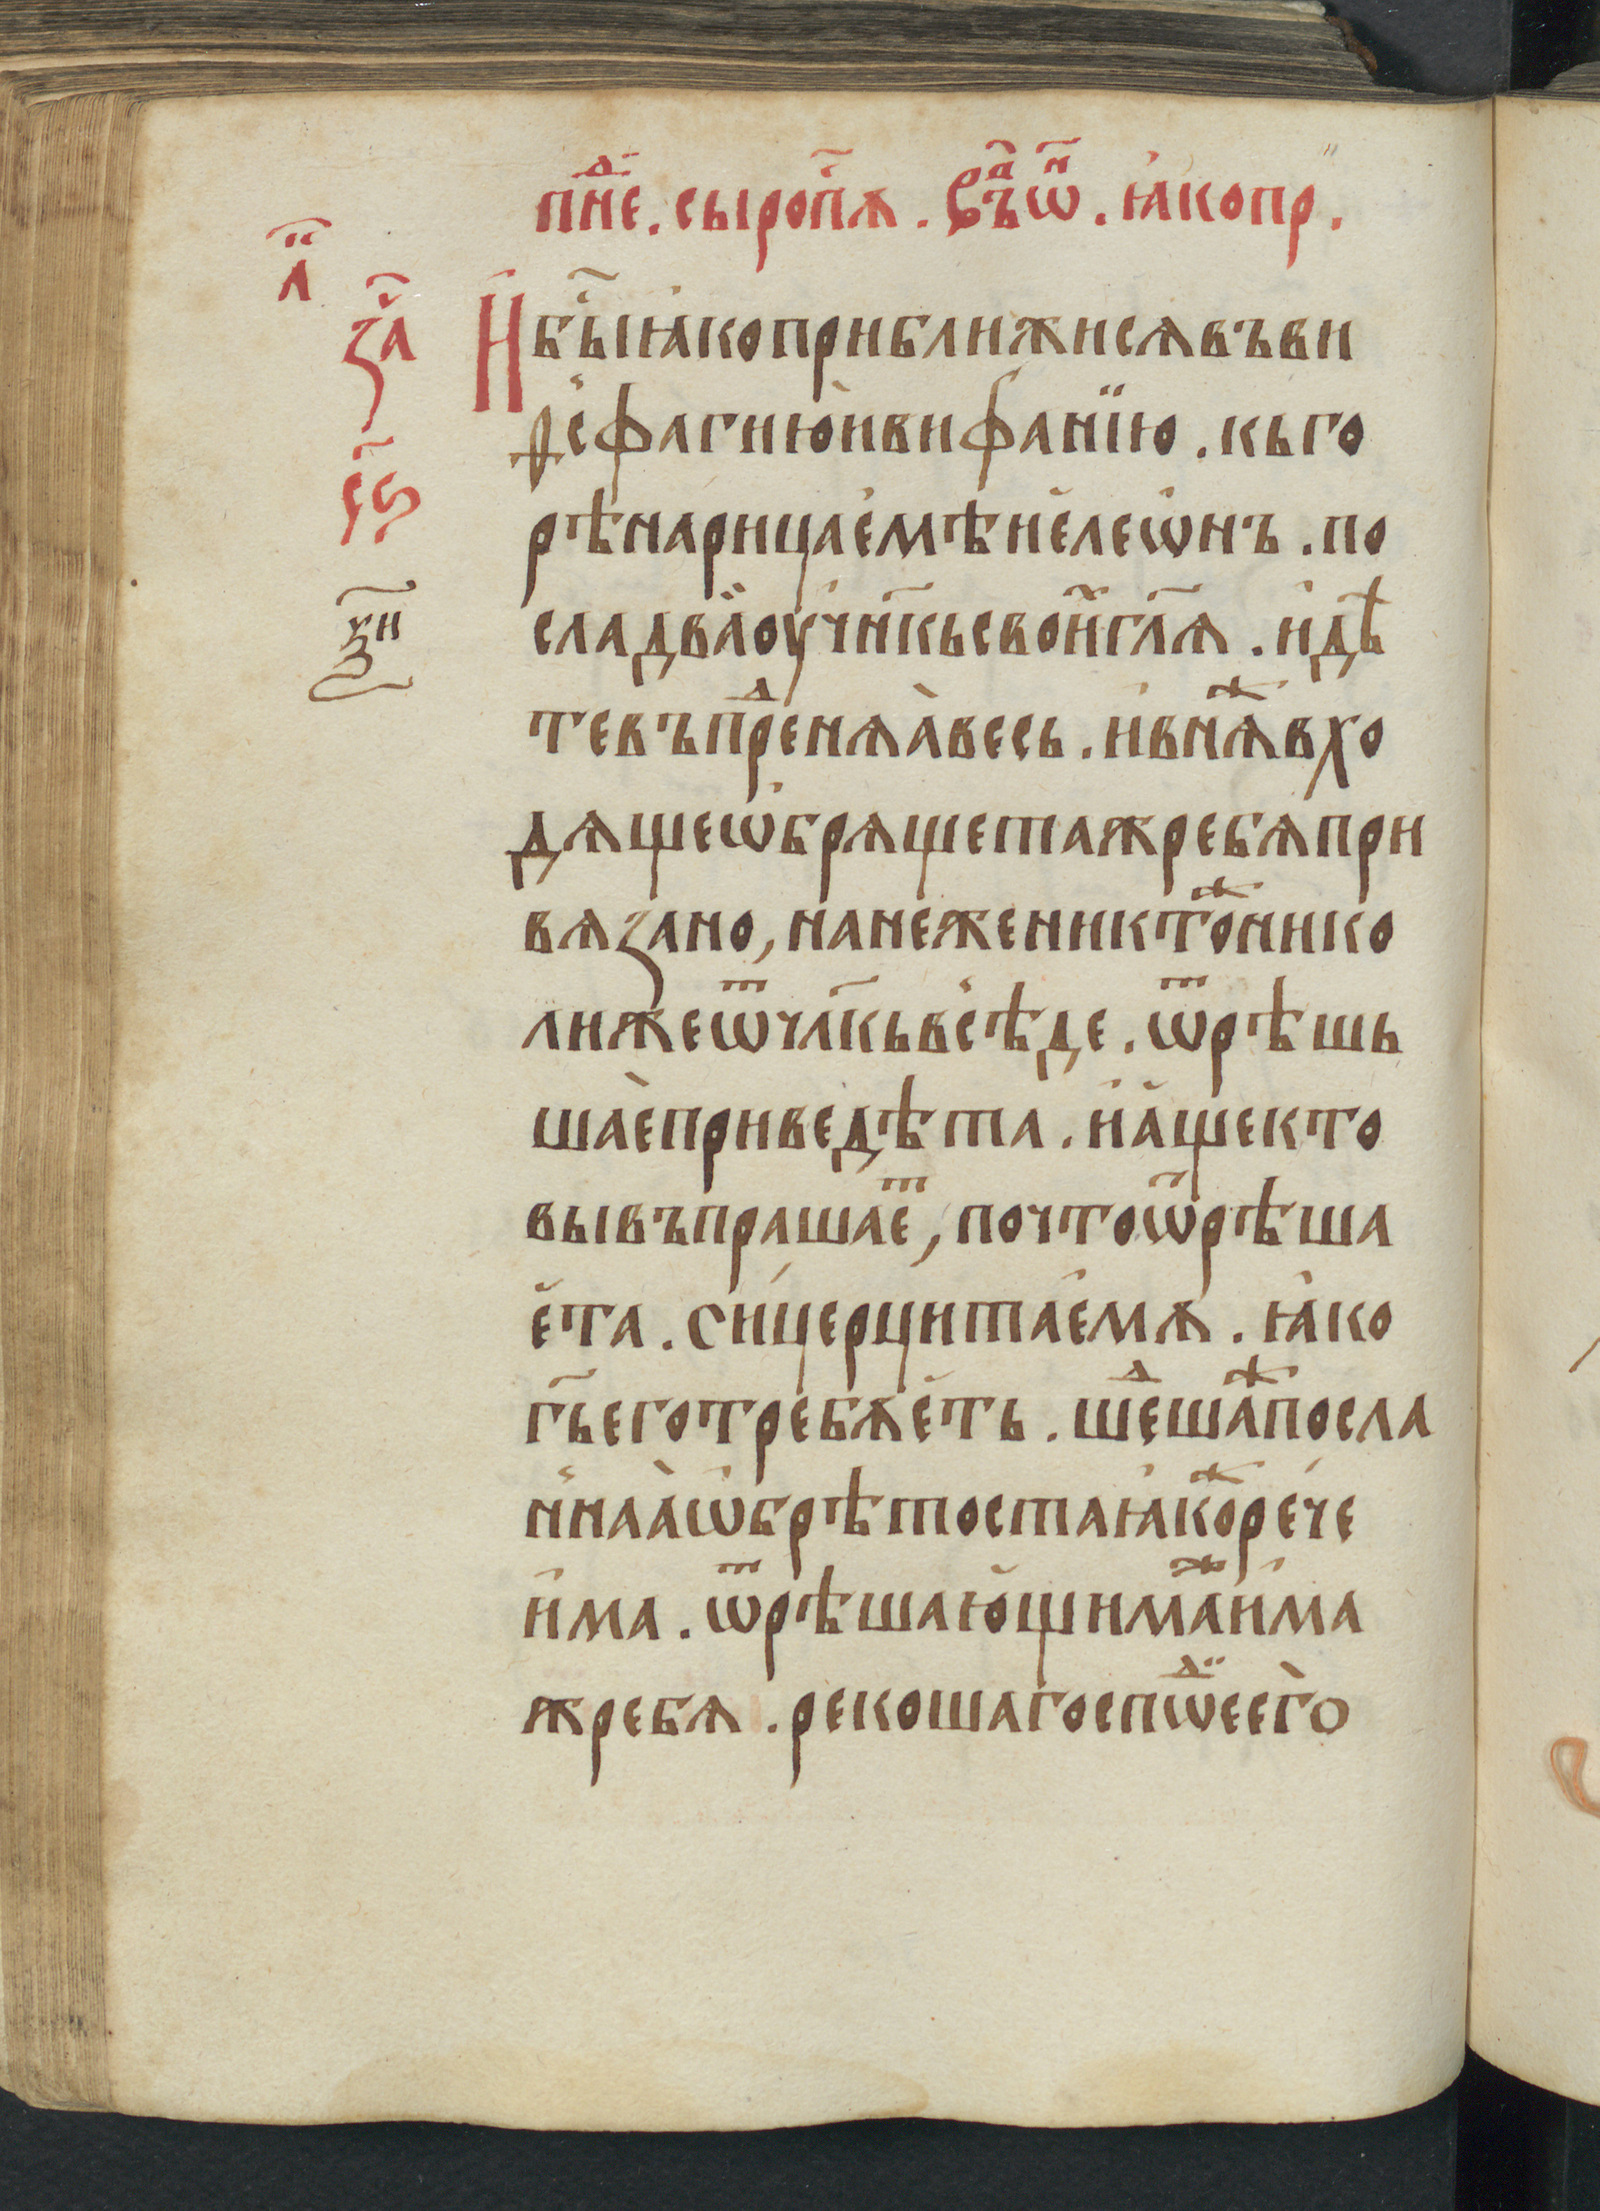 пн҃еⷣ. сыропⷭ҇ꙗ. є҃ѵⷢъѡⷩ҇. ꙗ҆ко пр.
л҃
заⷱ҇
ч҃ѕ
И бы́ⷭꙗ҆коприближисѧвъви
ѳ҆сфагиюивифанїю. къго
рѣнарицаемѣиелеѡнъ. по
сладвао҆учн҃късвоиⷯгл҃ѧ. идѣ
тевъпреⷣнѧꙗвесь. и҆внѧⷤвхо
дѧщеѡ҆брѧщетажребѧпри
вѧзано, нанежениктоⷤнико
лижеѿчл҃къвсѣде. ѿрѣшь
шаеприведѣта. и҆а҆щекто
вывъпрашаеⷮ, почтоѿрѣша
е҆та. си́церцитае҆мѧ. ꙗ҆ко
г҃ьеготребꙋе҆ть. шеⷣшаⷤпосла
н҆наꙗѡ҆брѣтостаꙗ҆коⷤре́че
и҆ма. ѿрѣшаю҆щимаⷤи҆ма
жребѧ. рекошагоспⷣⷪ҇еего